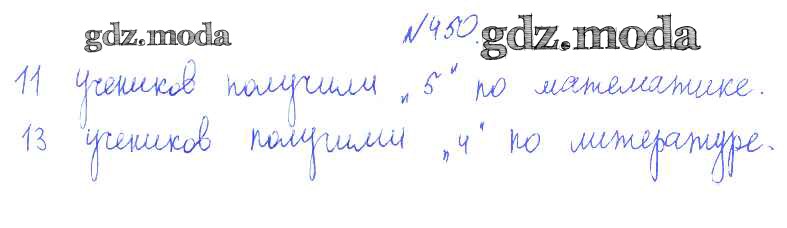 gdz.moda №450. gdz.moda
11 учеников получили „5" по математике.
13 учеников получили „4" по литературе.